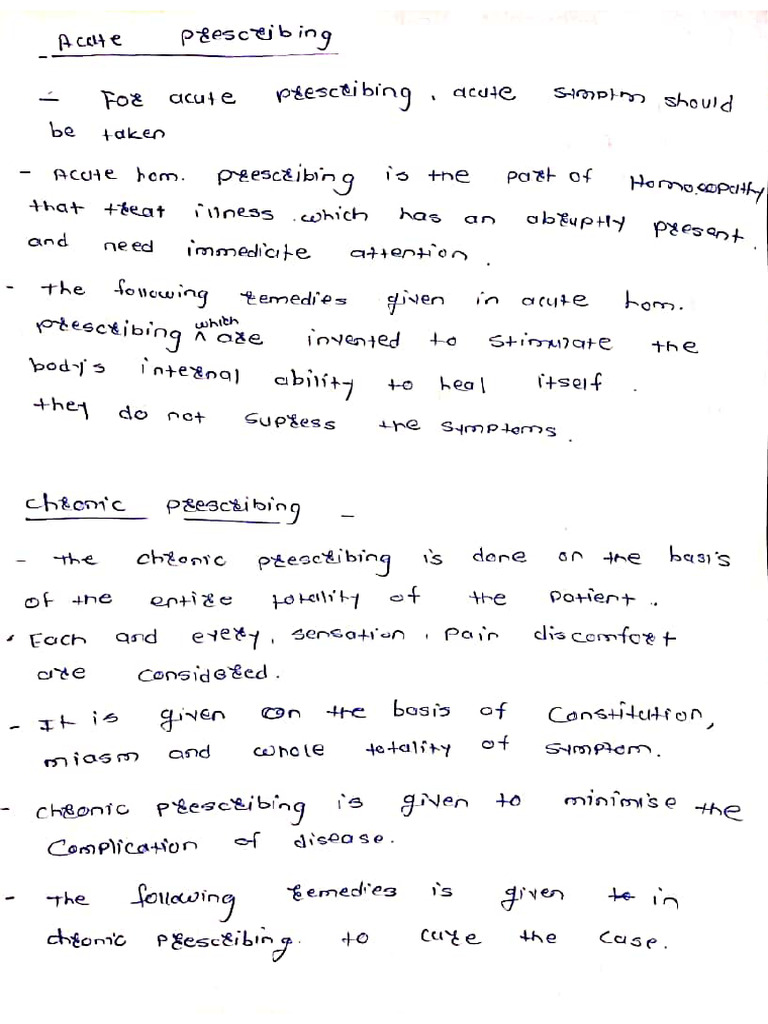 Acute prescribing
- For acute prescribing, acute simptm should
be taken
- Acute hom. prescribing is the part of Homoeopathy
that treat illness which has an abruptly present.
and need immediate attention.
- The following remedies given in acute hom.
prescribing which are invented to stimulate the
body's internal ability to heal itself.
they do not supress the symptoms.
Chronic prescribing -
- The chronic prescribing is done on the basis
of the entire totality of the patient.
• Each and every, sensation, pain discomfort
are considered.
- It is given on the basis of Constitution,
miasm and whole totality of symptom.
- Chronic prescribing is given to minimise the
Complication of disease.
- The following remedies is given in
chronic prescribing. to cure the case.